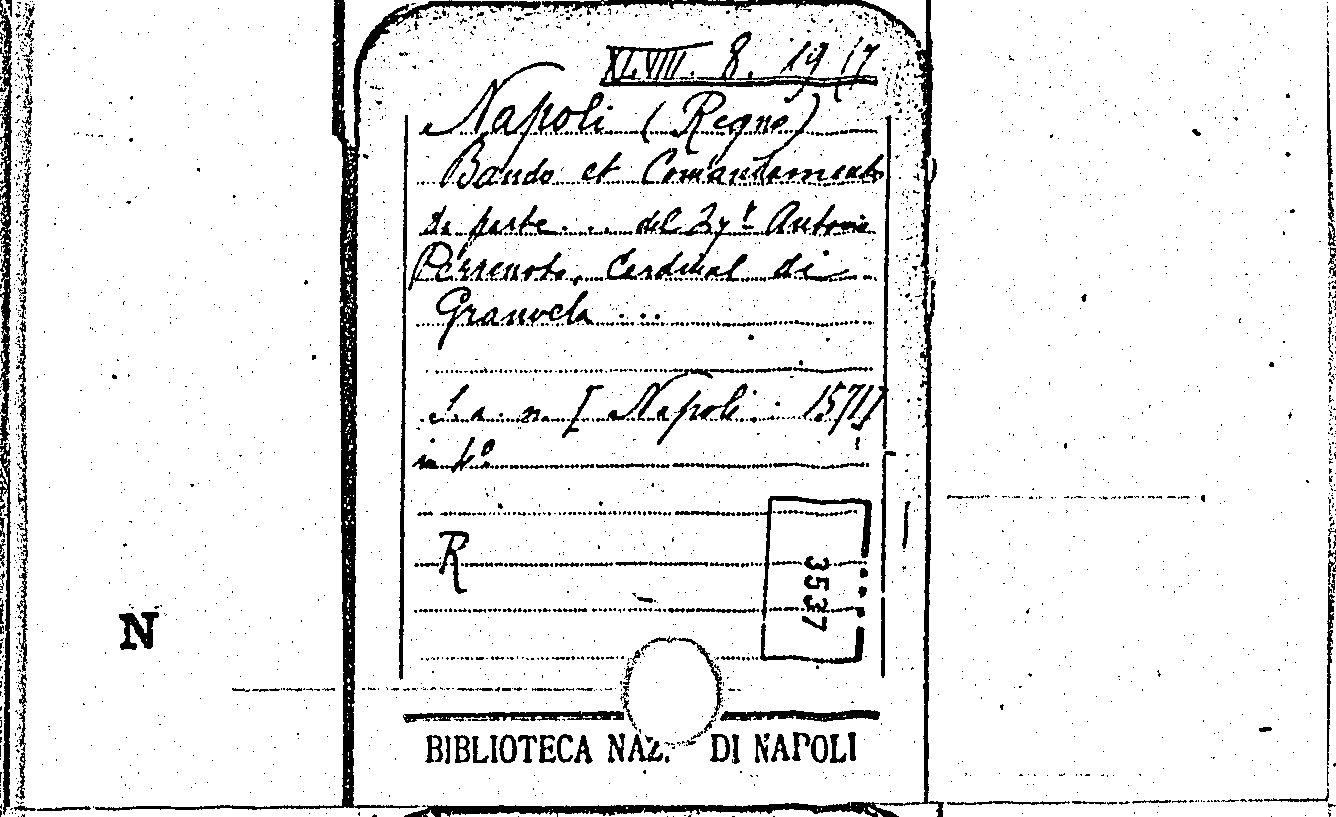 XLVIII. 8. 19 (7
Napoli (Regno)
Bando et Comandamento
da parte.... del Antonio
Perrenoto, Cardinal di
Granvela ...
S. a. n. [Napoli: 1571]
in 4º
R
3537
N
BIBLIOTECA NAZ. DI NAPOLI